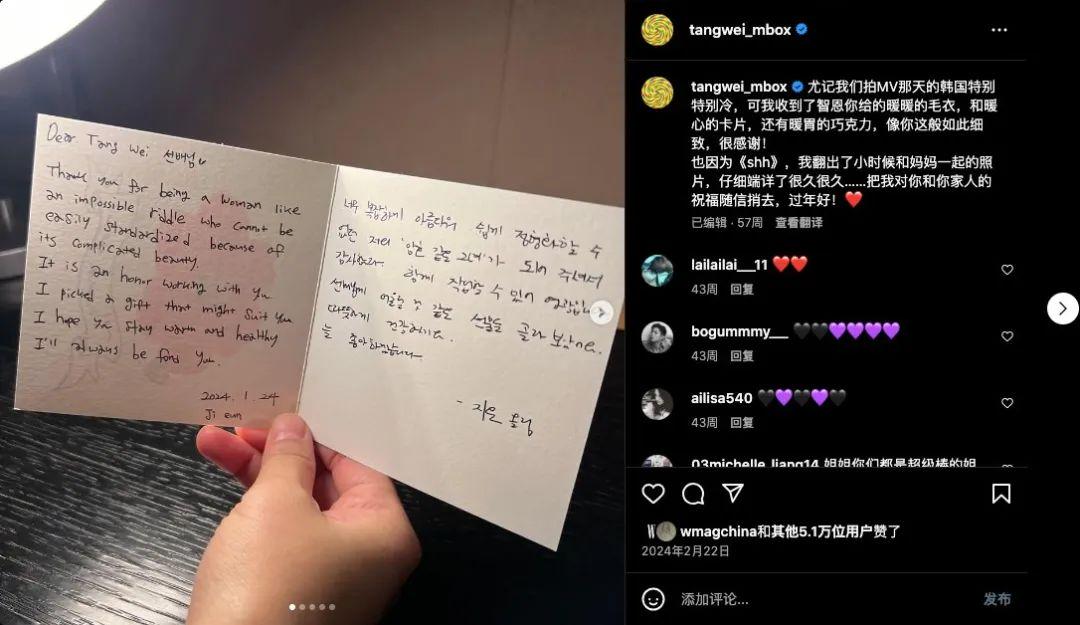 Dear Tang Wei 선배님
Thank you for being a woman like
an impossible riddle who cannot be
easily standardized because of
its complicated beauty.
It is an honor working with you
I picked a gift that might suit you
I hope you stay warm and healthy
I'll always be fond you.
2024. 1. 24
Ji eun
너무 복잡하게 아름다워 쉽게 정형화할 수
없는 저의 '암호 같은 그녀'가 되어 주셔서
감사합니다. 함께 작업할 수 있어 영광입니
선배님께 어울릴 것 같은 선물을 골라 보았어요.
따뜻하게 건강하세요.
늘 좋아하겠습니다
- 지은 올림
tangwei_mbox
tangwei_mbox 尤记我们拍MV那天的韩国特别
特别冷，可我收到了智恩你给的暖暖的毛衣，和暖
心的卡片，还有暖胃的巧克力，像你这般如此细
致，很感谢！
也因为《shh》，我翻出了小时候和妈妈一起的照
片，仔细端详了很久很久……把我对你和你家人的
祝福随信捎去，过年好！❤️
已编辑 · 57周 查看翻译
lailailai___11 ❤️❤️
43周 回复
bogummmy___ 🖤🖤💜💜💜💜
43周 回复
ailisa540 🖤💜🖤💜🖤
43周 回复
03michelle_liang14 姐姐你们都是超级棒的姐
wmagchina和其他5.1万位用户赞了
2024年2月22日
添加评论... 发布